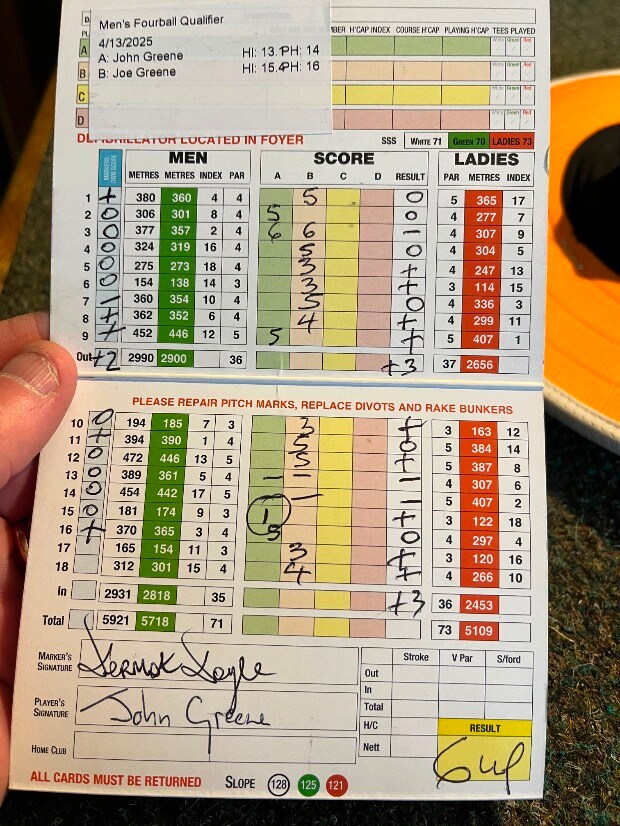 Men's Fourball Qualifier
4/13/2025
A: John Greene HI: 13.1 PH: 14
B: Joe Greene HI: 15.4 PH: 16
H'CAP INDEX COURSE H'CAP PLAYING H'CAP TEES PLAYED
A White Green Red
B White Green Red
C White Green Red
D White Green Red
DEFIBRILLATOR LOCATED IN FOYER SSS WHITE 71 GREEN 70 LADIES 73
MARKERS OWN SCORE MEN SCORE LADIES
METRES METRES INDEX PAR A B C D RESULT PAR METRES INDEX
1 + 380 360 4 4 5 0 5 365 17
2 0 306 301 8 4 5 0 4 277 7
3 0 377 357 2 4 6 6 – 4 307 9
4 0 324 319 16 4 5 0 4 304 5
5 0 275 273 18 4 3 + 4 247 13
6 0 154 138 14 3 3 + 3 114 15
7 – 360 354 10 4 5 0 4 336 3
8 + 362 352 6 4 4 + 4 299 11
9 + 452 446 12 5 5 + 5 407 1
Out +2 2990 2900 36 +3 37 2656
PLEASE REPAIR PITCH MARKS, REPLACE DIVOTS AND RAKE BUNKERS
10 0 194 185 7 3 3 + 3 163 12
11 + 394 390 1 4 5 + 5 384 14
12 0 472 446 13 5 5 + 5 387 8
13 0 389 361 5 4 – – – 4 307 6
14 0 454 442 17 5 – – 5 407 2
15 0 181 174 9 3 1 + 3 122 18
16 + 370 365 3 4 5 0 4 297 4
17 165 154 11 3 3 + 3 120 16
18 312 301 15 4 4 + 4 266 10
In 2931 2818 35 +3 36 2453
Total 5921 5718 71 73 5109
MARKER'S SIGNATURE Dermot Doyle
PLAYER'S SIGNATURE John Greene
HOME CLUB
Stroke V Par S/ford
Out
In
Total
H/C RESULT
Nett 6 up
ALL CARDS MUST BE RETURNED SLOPE 128 125 121